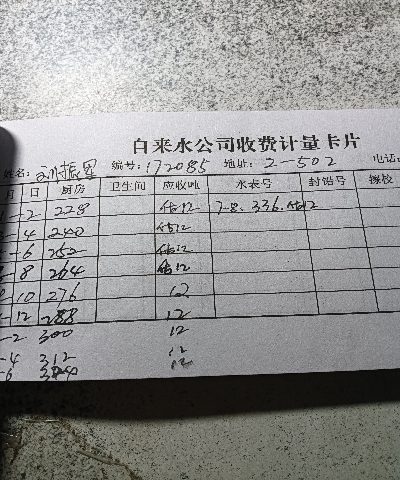 自来水公司收费计量卡片
姓名: 刘振军 编号: 172085 地址: 2-502 电话:
月 日 厨房 卫生间 应收吨 水表号 封铅号 换校
-2 228 估12 7-8. 336. 估12
-4 240 估12
-6 252 估12
-8 264 估12
-10 276 12
-12 288 12
-2 300 12
-4 312 12
-6 324 12